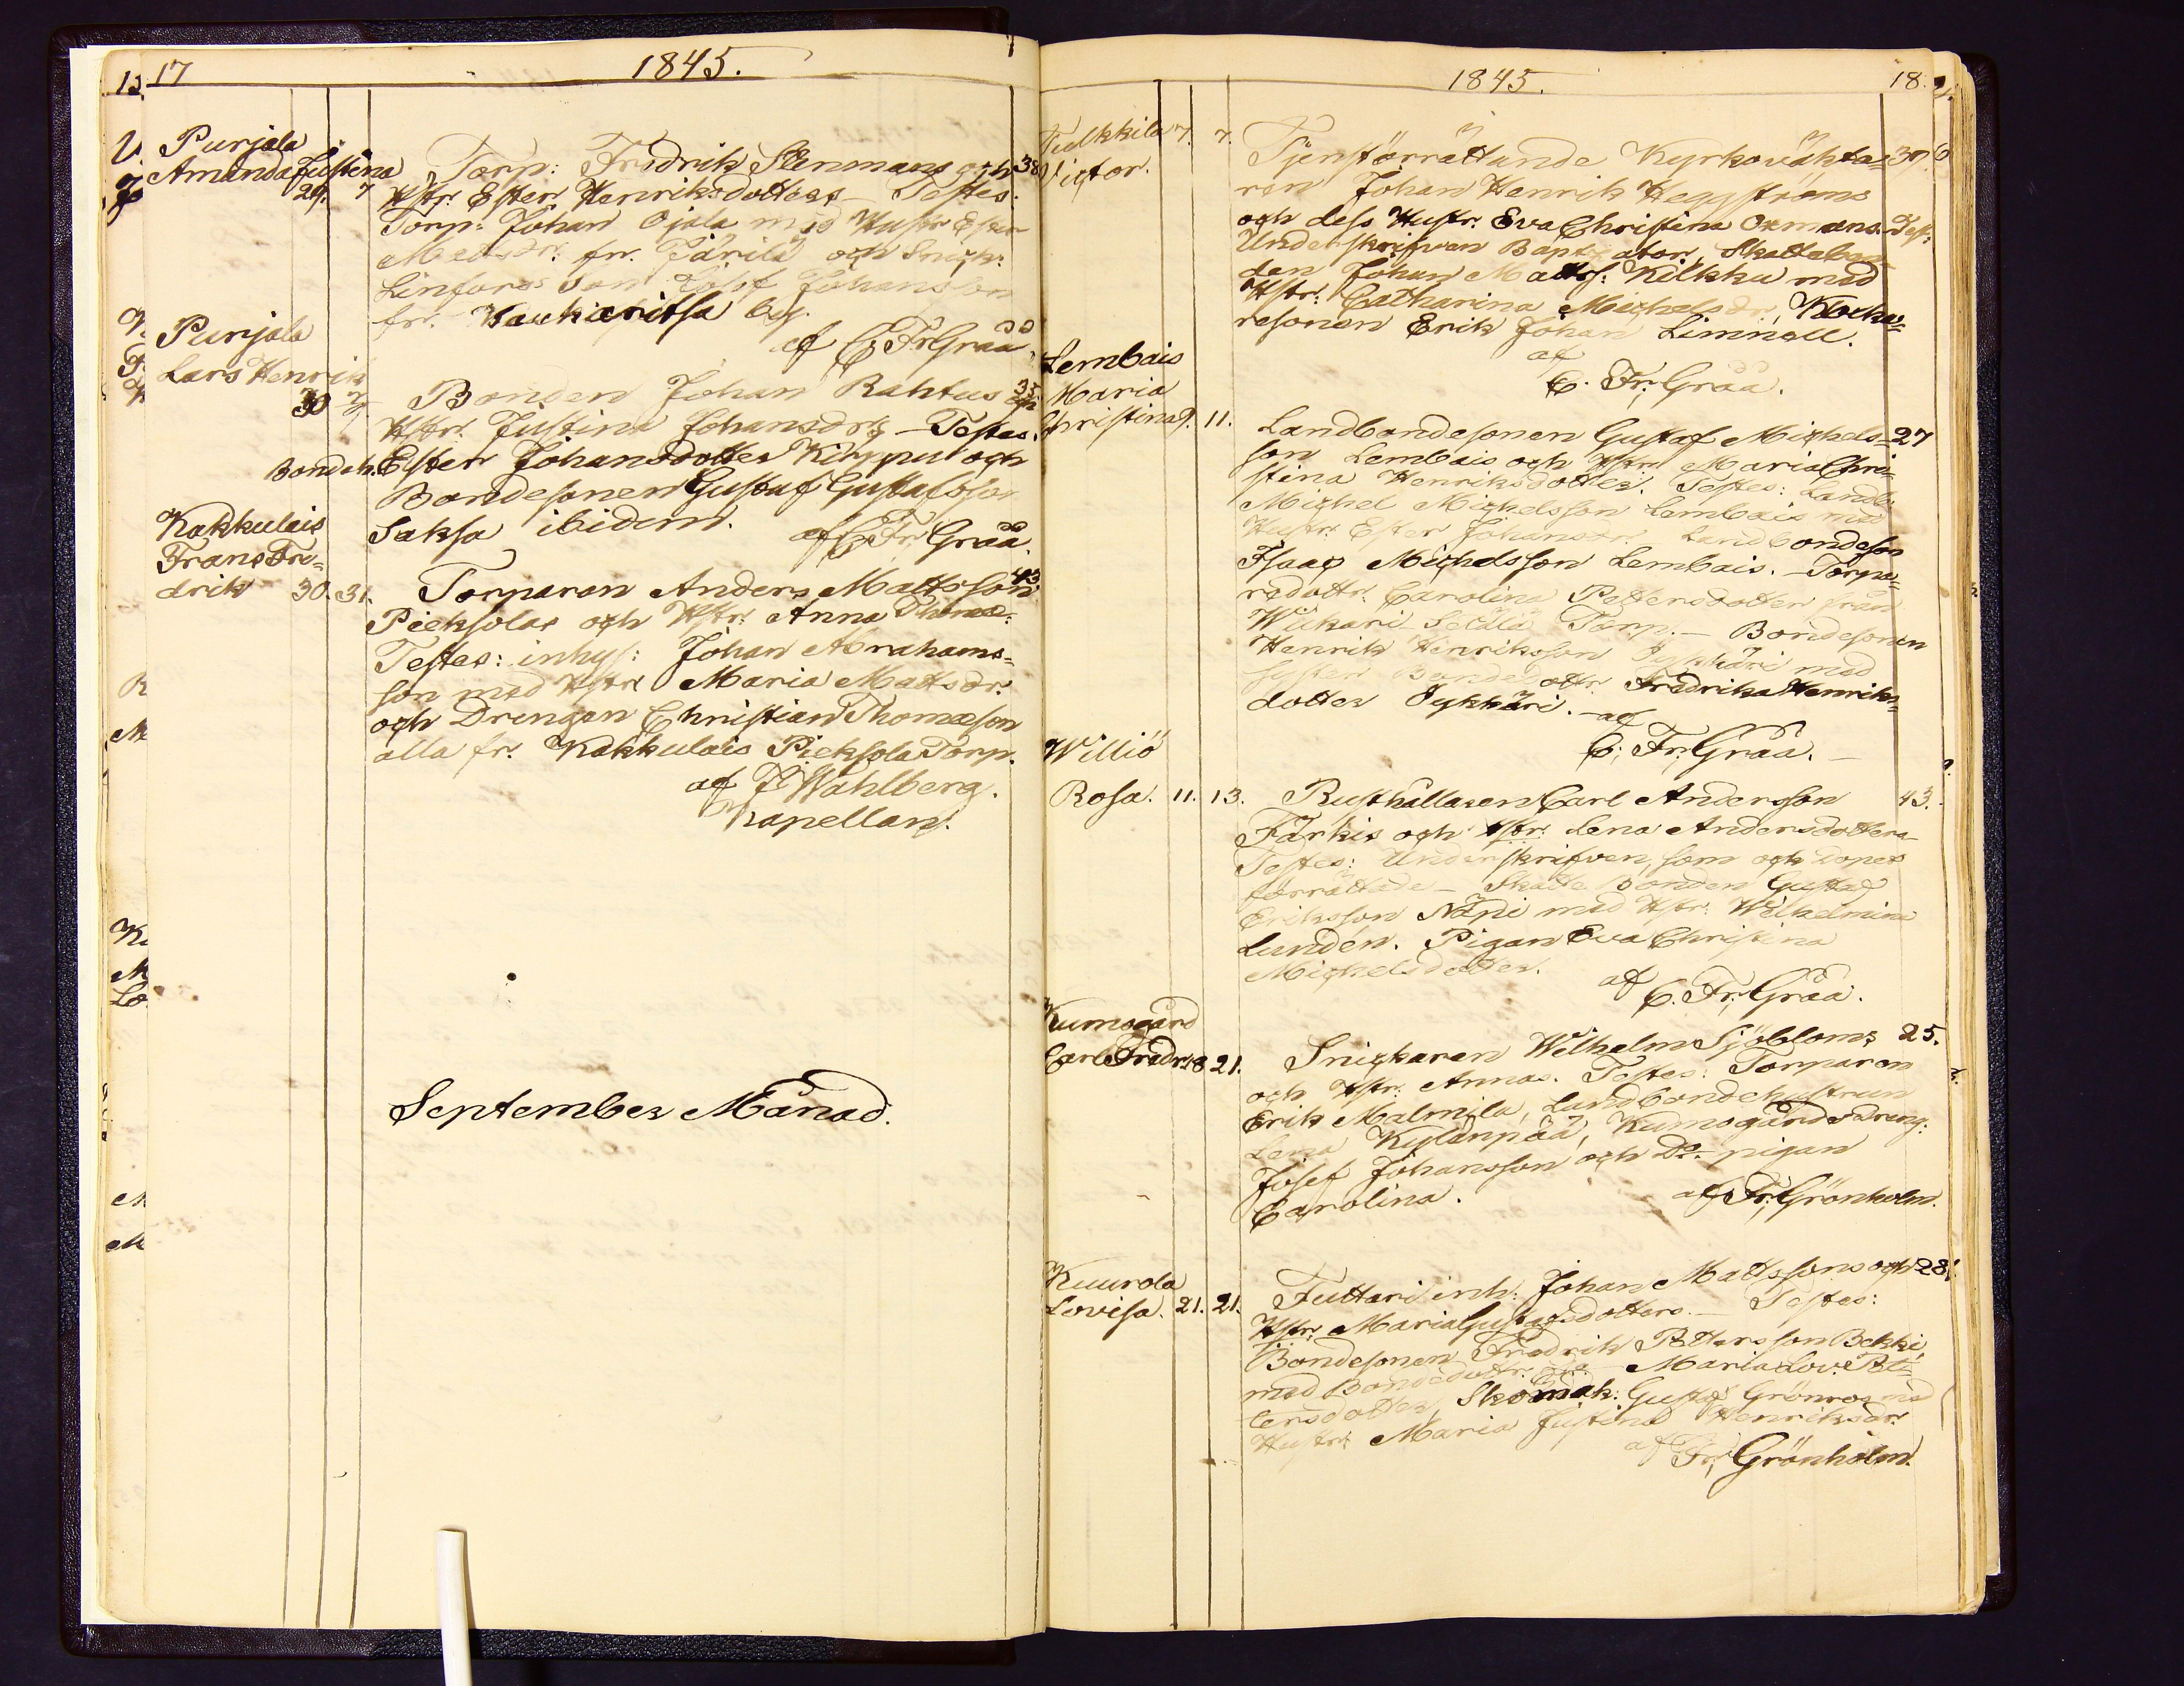 17 1845.
Purjala
Amanda Justina
29. 7
Torp: Fredrik Stenmans och 38
Hstr. Ester Henriksdotters – Testes:
Torp: Johan Ojala med Hustr Ester
Matsdr. fr. Pärilä och Snick:
Linfors Son Josef Johansson
fr. Haukiaritsa By.
af C. Fr. Gråå
Purjala
Lars Henrik
30 7
Bonden Johan Rahtus och 35
Hstr. Justina Johansdrs – Testes.
Bondeh. Ester Johansdotter Kirppu och
Bondesonen Gustaf Gustafsson
Saksa ibidem.
af C. Fr. Gråå.
Kakkulais
Frans Fre=
drik 30. 31.
Torparen Anders Mattsson 43
Pieksolas och Hstr. Anna Thomæ:
Testes: inhys: Johan Abrahams=
son med Hstr. Maria Matsdr.
och Drengen Christian Thomæson
alla fr. Kakkulais Pieksola Torp.
af J Wahlberg.
Kapellan.
September Månad.
1845. 18.
Tulkkila 7. 7.
Victor.
Tjenstförrättande Kyrkoväkta= 39.
ren Johan Henrik Heggströms
och dess Hustr. Eva Christina Oxmans. Test:
Underskrifven Baptisator, Skattebon=
den Johan Matts: Kilkku med
Hstr. Catharina Michelsdr, Klocka=
resonen Erik Johan Limnell.
af
C. Fr. Gråå.
Lembais
Maria
Christina 9. 11.
Landbondesonen Gustaf Michels= 27
son Lembais och Hstr. Maria Chri=
stina Henriksdotter. Testes: Landb.
Michel Michelsson Lembais med
Hustr. Ester Johansdr. Landbondeson
Isaac Michelsson Lembais. – Torpa=
redottr. Carolina Pettersdotter från
Wiikari Torp. – Bondesonen
Henrik Henriksson Jykkäri med
syster Bondedottr. Fredrika Henriks=
dotter Jykkäri. – af
C. Fr. Gråå. –
Williö
Rosa. 11. 13.
Rusthållaren Carl Andersson 43.
Färkis och Hstr. Lena Andersdotters
Testes: Underskrifven, som och dopet
förrättade – Skatte Bonden Gustaf
Eriksson Näpi med Hstr. Wilhelmina
Lundén. Pigan Eva Christina
Michelsdotter.
af C. Fr. Gråå.
Kumogård
Carl Fredr. 18 21.
Snickaren Wilhelm Sjöbloms 25.
och Hstr. Annas. Testes: Torparen
Erik Malmila, Landbondehustrun
Lena Kylänpää, Kumogårds Dreng:
Josef Johansson och Do. pigan
Carolina.
af Fr. Grönholm.
Kuurola
Lovisa. 21. 21.
Tuttari inh: Johan Mattssons och 28.
Hstr. Maria Gustafsdotters. – Testes:
Bondesonen Fredrik Pettersson Bekki
med Bondedottr. Do Maria Lov. Pet=
tersdotter, Skomak: Gustaf Grönroos med
Hustr. Maria Justina Henriksdr.
af Fr. Grönholm.